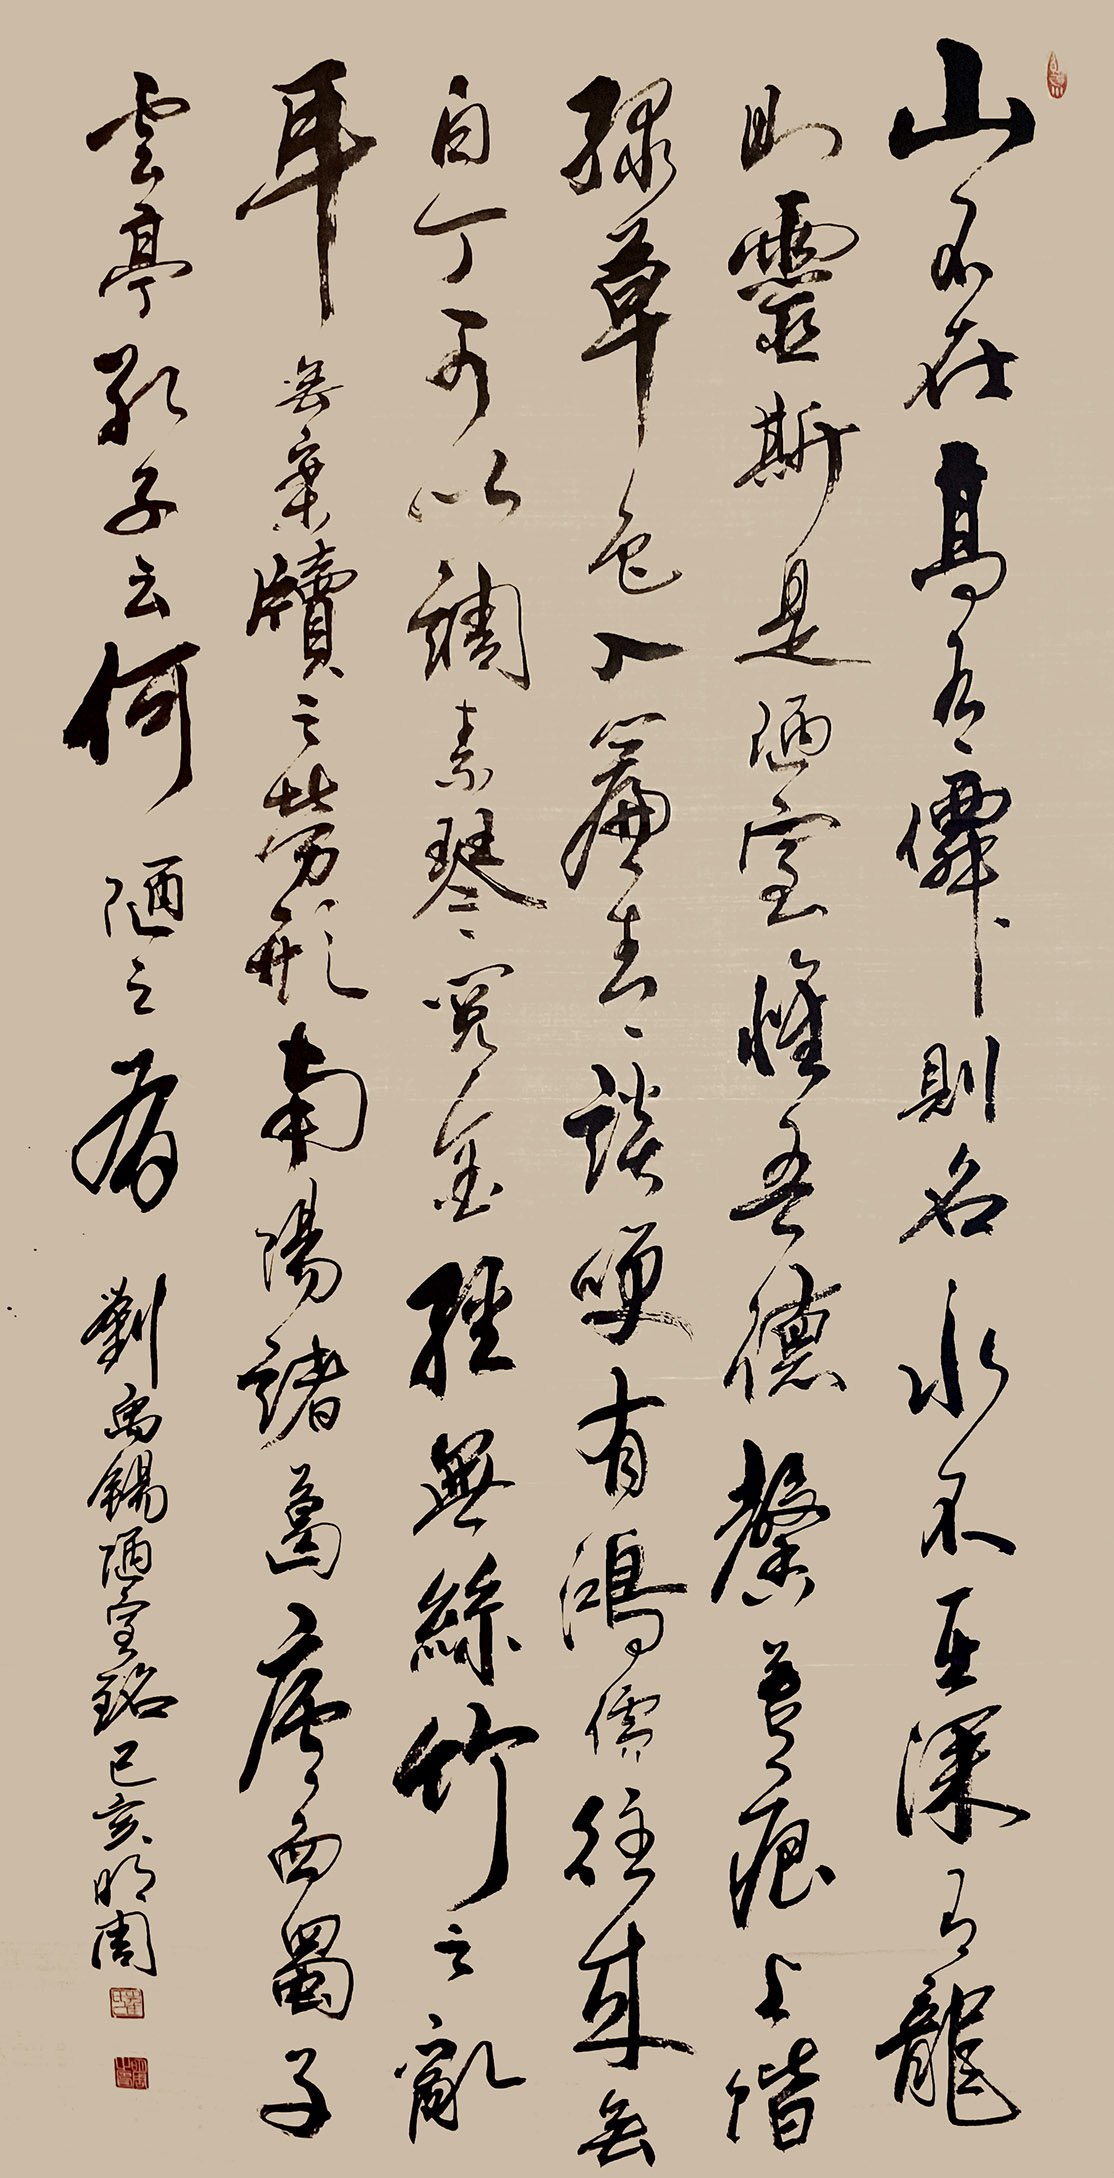 山不在高有僊則名水不在深有龍
則靈斯是陋室惟吾德馨苔痕上階
綠草色入簾青談笑有鴻儒往來無
白丁可以調素琴閱金經無絲竹之亂
耳無案牘之勞形南陽諸葛廬西蜀子
雲亭孔子云何陋之有劉禹錫陋室銘己亥明周